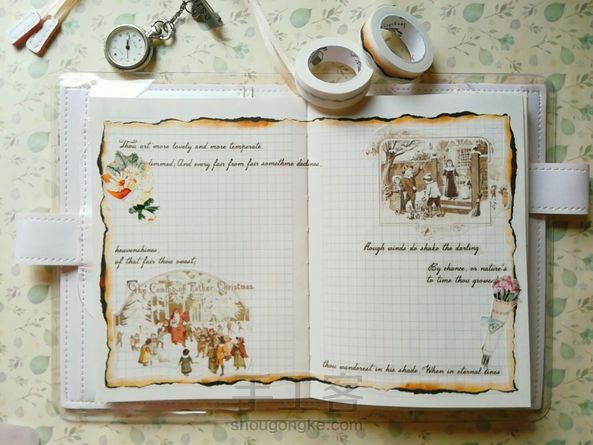 Thou art more lovely and more temperate.
dimmed; And every fair from fair somethme declines,
heavenshines,
of that fair thou owest;
The Coming of Father Christmas.
Rough winds do shake the darling
By chance, or nature's
to time thou growest
thou wanderest in his shade, When in eternal lines
手工客
shougongke.com